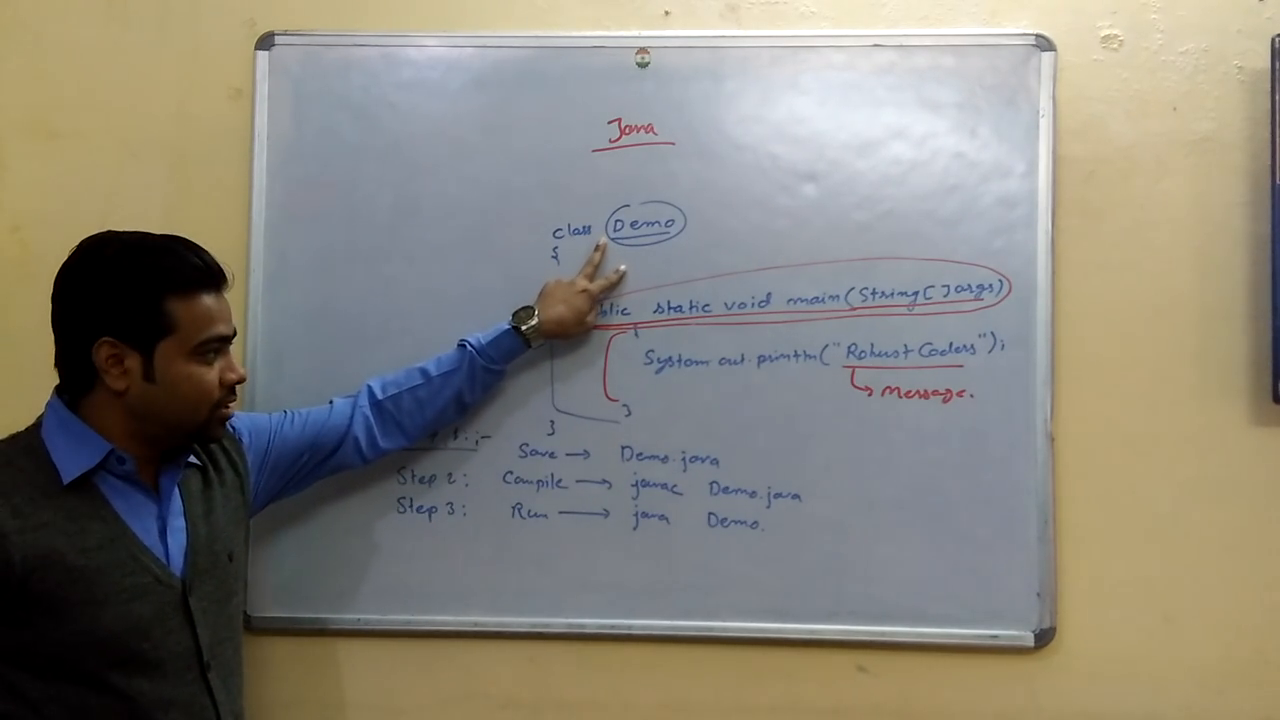 Java
class Demo
{
blic static void main(String[] args)
{
System.out.println("Robust Coders");
→ Message.
}
}
Save → Demo.java
Step 2: Compile → javac Demo.java
Step 3: Run → java Demo.